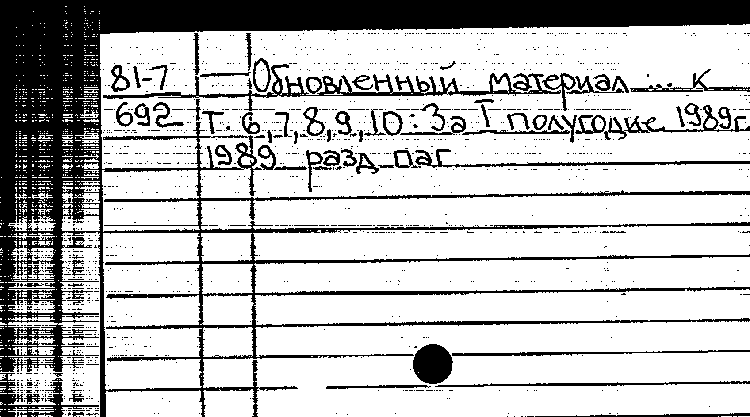 81-7 — Обновленный материал ... к
692 т. 6,7,8,9,10: За I полугодие 1989г.
1989 разд. паг